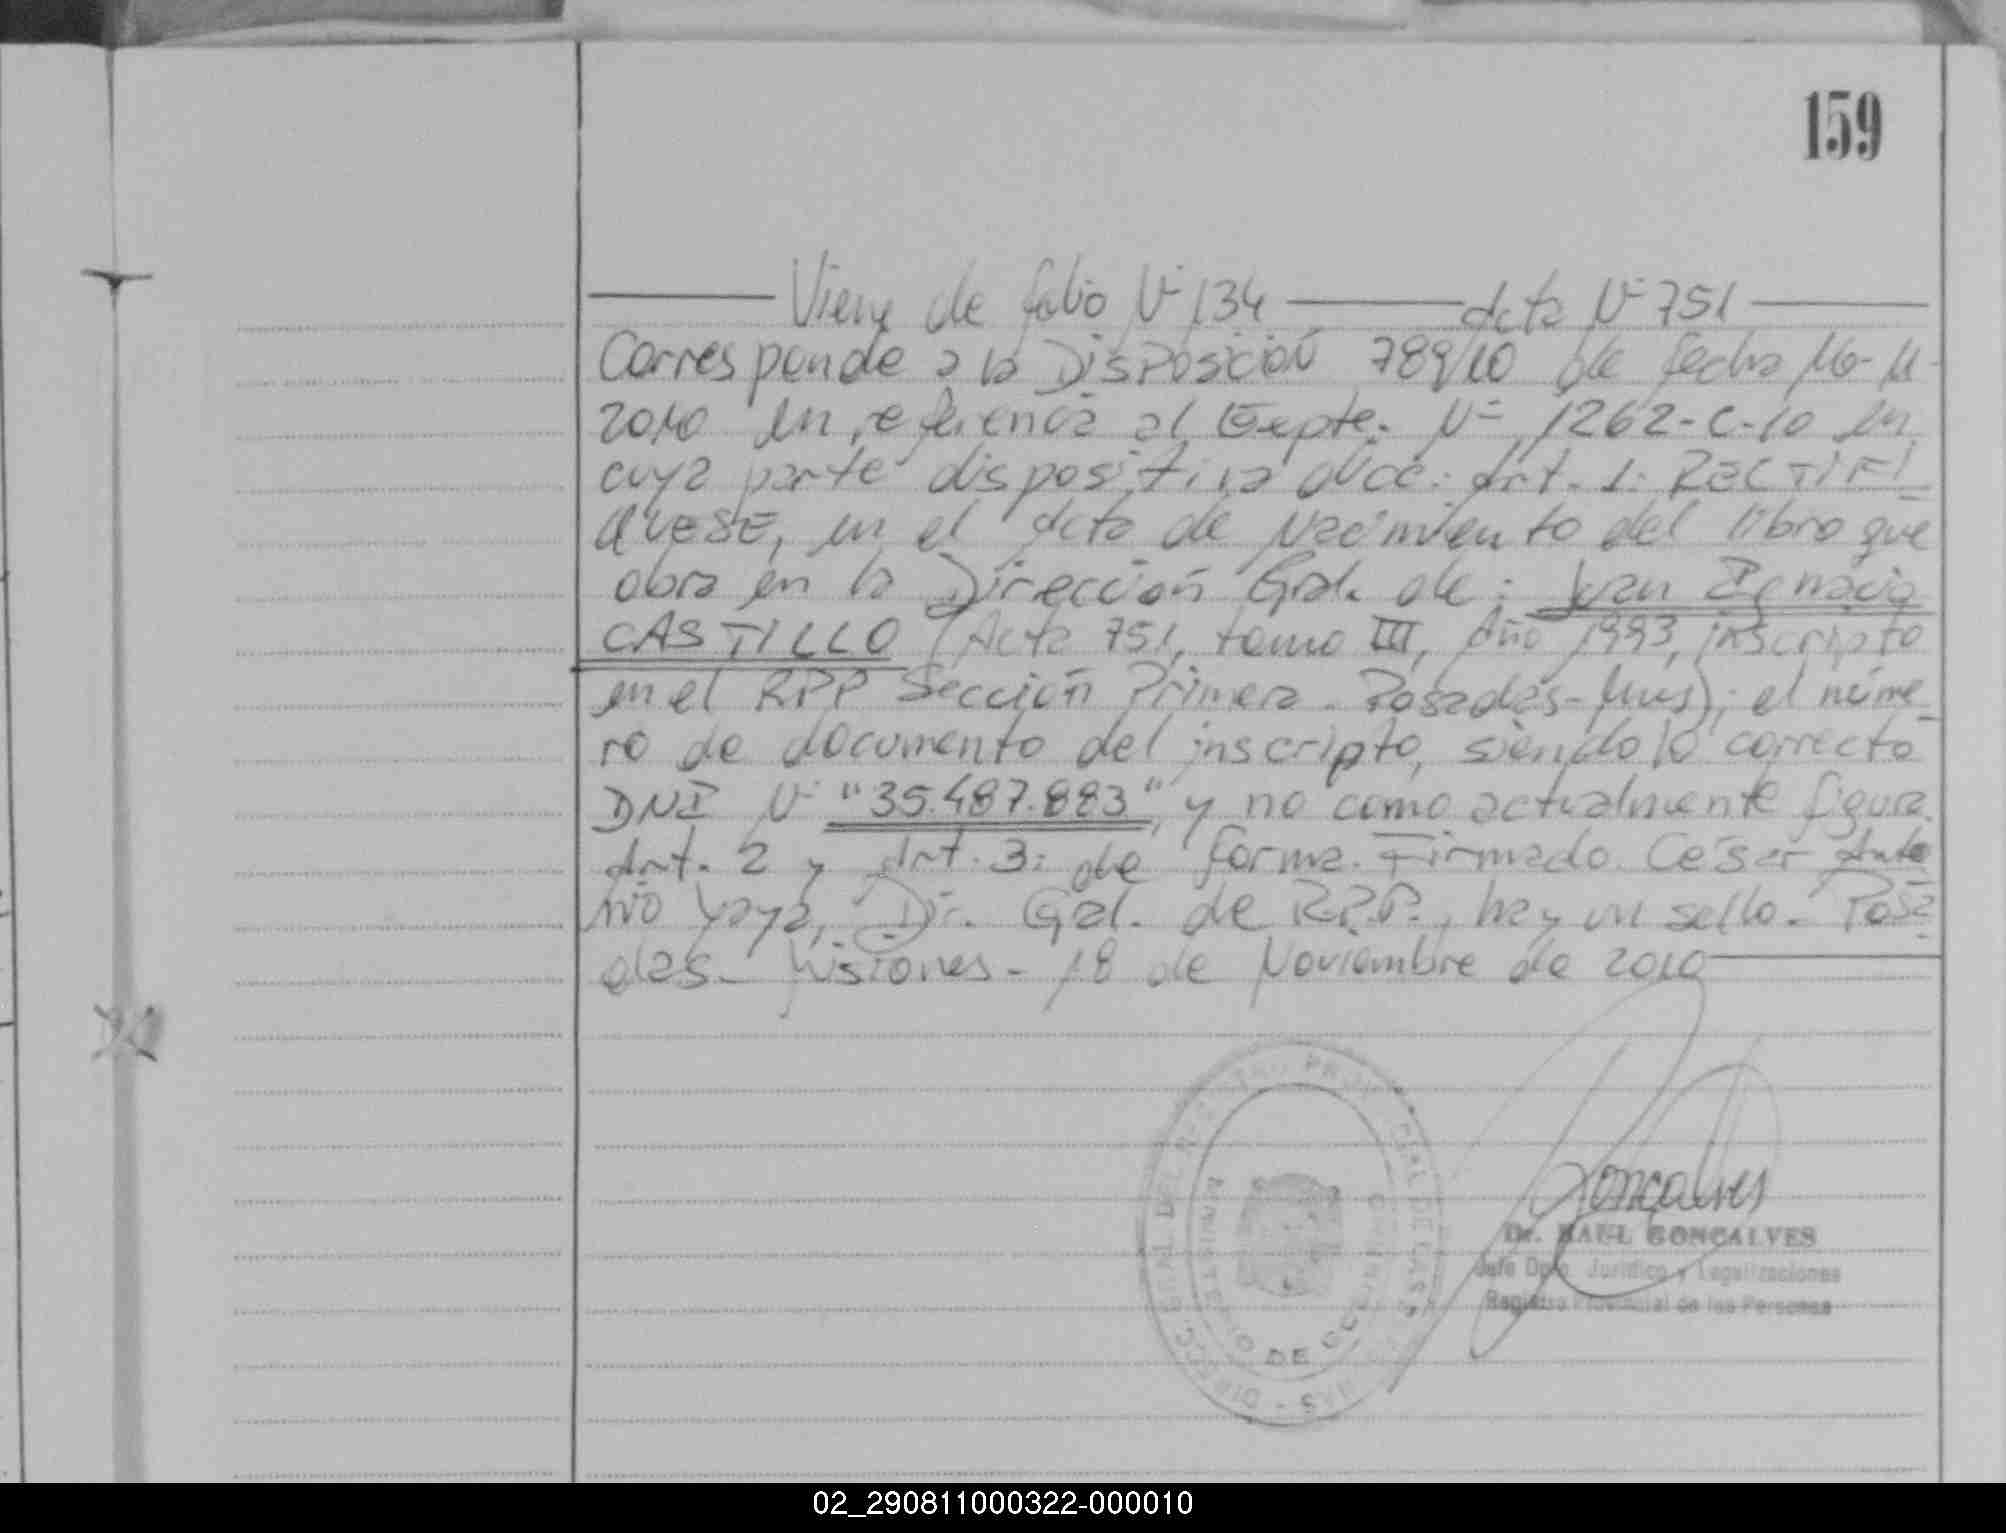 159
Viene de folio Nº 134 acta Nº 751
Corresponde a la Disposición 789/10 de fecha 16-11-
2010 en referencia al Expte. Nº 1262-C-10 en
cuya parte dispositiva dice: Art. 1: RECTIFI_
QUESE, en el Acta de Nacimiento del libro que
obra en la Dirección Gral. de: Juan Ignacio
CASTILLO (Acta 751, tomo III, Año 1993, inscripto
en el RPP Sección Primera - Posadas-Mnes); el núme_
ro de documento del inscripto, siendo lo correcto
DNI Nº "35.487.883", y no como actualmente figura.
Art. 2 y Art. 3: de forma. Firmado. César Anto
nio Yaya, Dir. Gral. de R.P.P., hay un sello. Posa
das - Misiones - 18 de Noviembre de 2010
Goncalves
Dr. RAUL GONCALVES
Jefe Dpto. Jurídico y Legalizaciones
Registro Provincial de las Personas
02_290811000322-000010